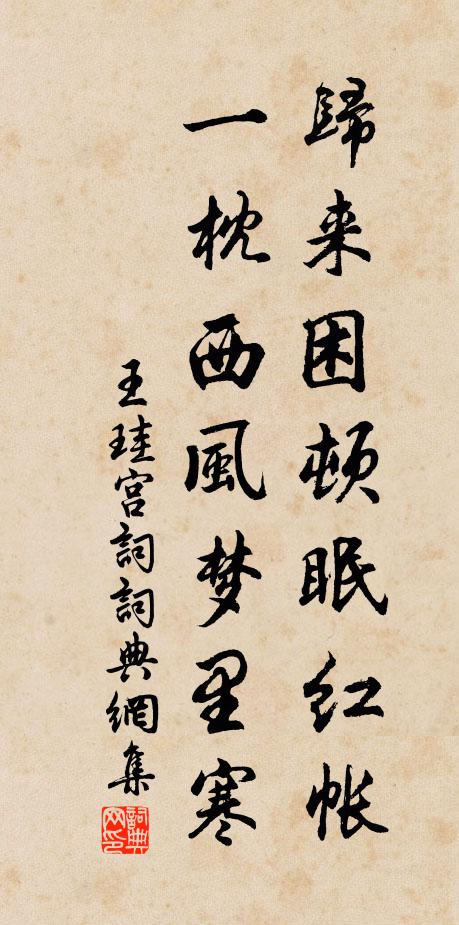 歸来困頓眠红帐
一枕西風梦里寒
王珪宫詞詞典網集
詞典网印